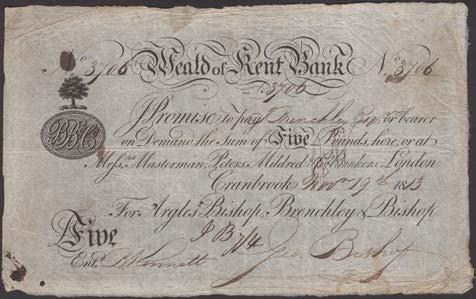 No 3706 Weald of Kent Bank No 3706
3706
I Promise to pay Brenchley Esqr. or bearer
on Demand the Sum of Five Pounds, here, or at
Messrs. Masterman, Peters, Mildred Bankers, London
Cranbrook Novr 19th 1813
For Argles, Bishop, Brenchley & Bishop
BB&Co
Five
Entd.
Geo. Bishop